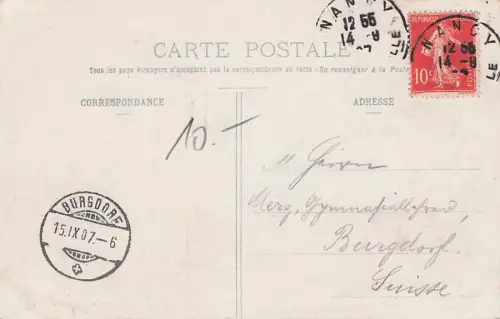 NANCY
12 55
14 -9
07
NANCY
12 55
14 -9
REPUBLIQUE
10c
CARTE POSTALE
Tous les pays étrangers n'acceptent pas la correspondance au recto (Se renseigner à la Poste)
CORRESPONDANCE
ADRESSE
10.-
Herrn
Merz, Gymnasiallehrer,
Burgdorf.
Suisse
BURGDORF
15.IX.07.-6